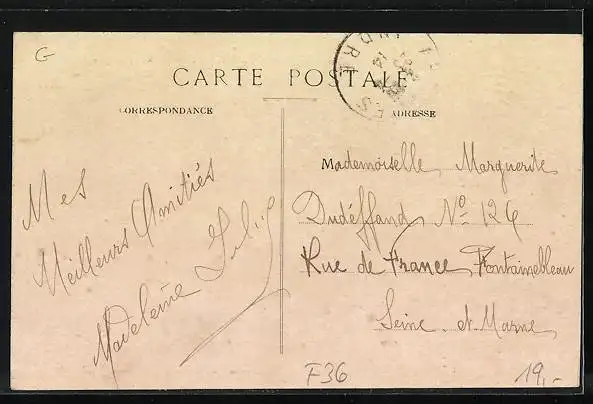 G
CARTE POSTALE
CORRESPONDANCE
ADRESSE
Mes
Meilleurs Amitiés
Madeleine
Mademoiselle Marguerite
Dudéffand No 124
Rue de France, Fontainebleau
Seine et Marne
F36
19,-